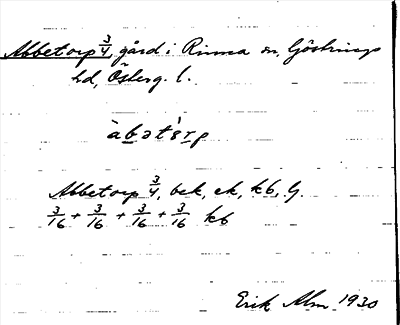 Abbetorp 3/4, gård i Rinna sn, Göstrings
hd, Österg. l.
Abbetorp 3/4, bek, ek, kb, G.
3/16 + 3/16 + 3/16 + 3/16 kb
Erik Alm 1930